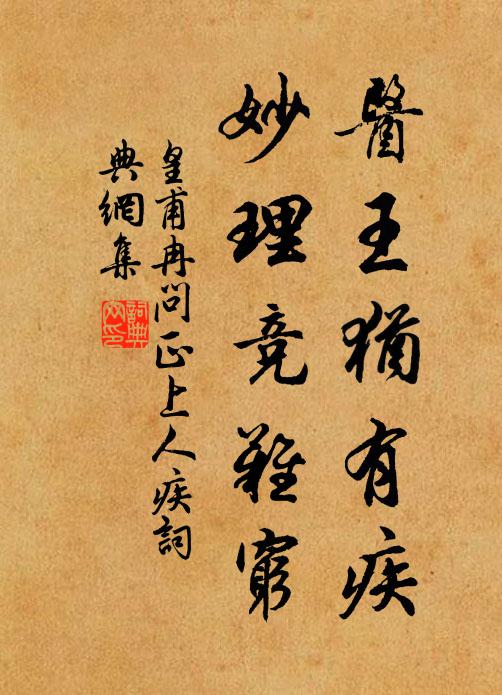 醫王猶有疾
妙理竞難窮
皇甫冉问正上人疾詞
典網集
詞典网印